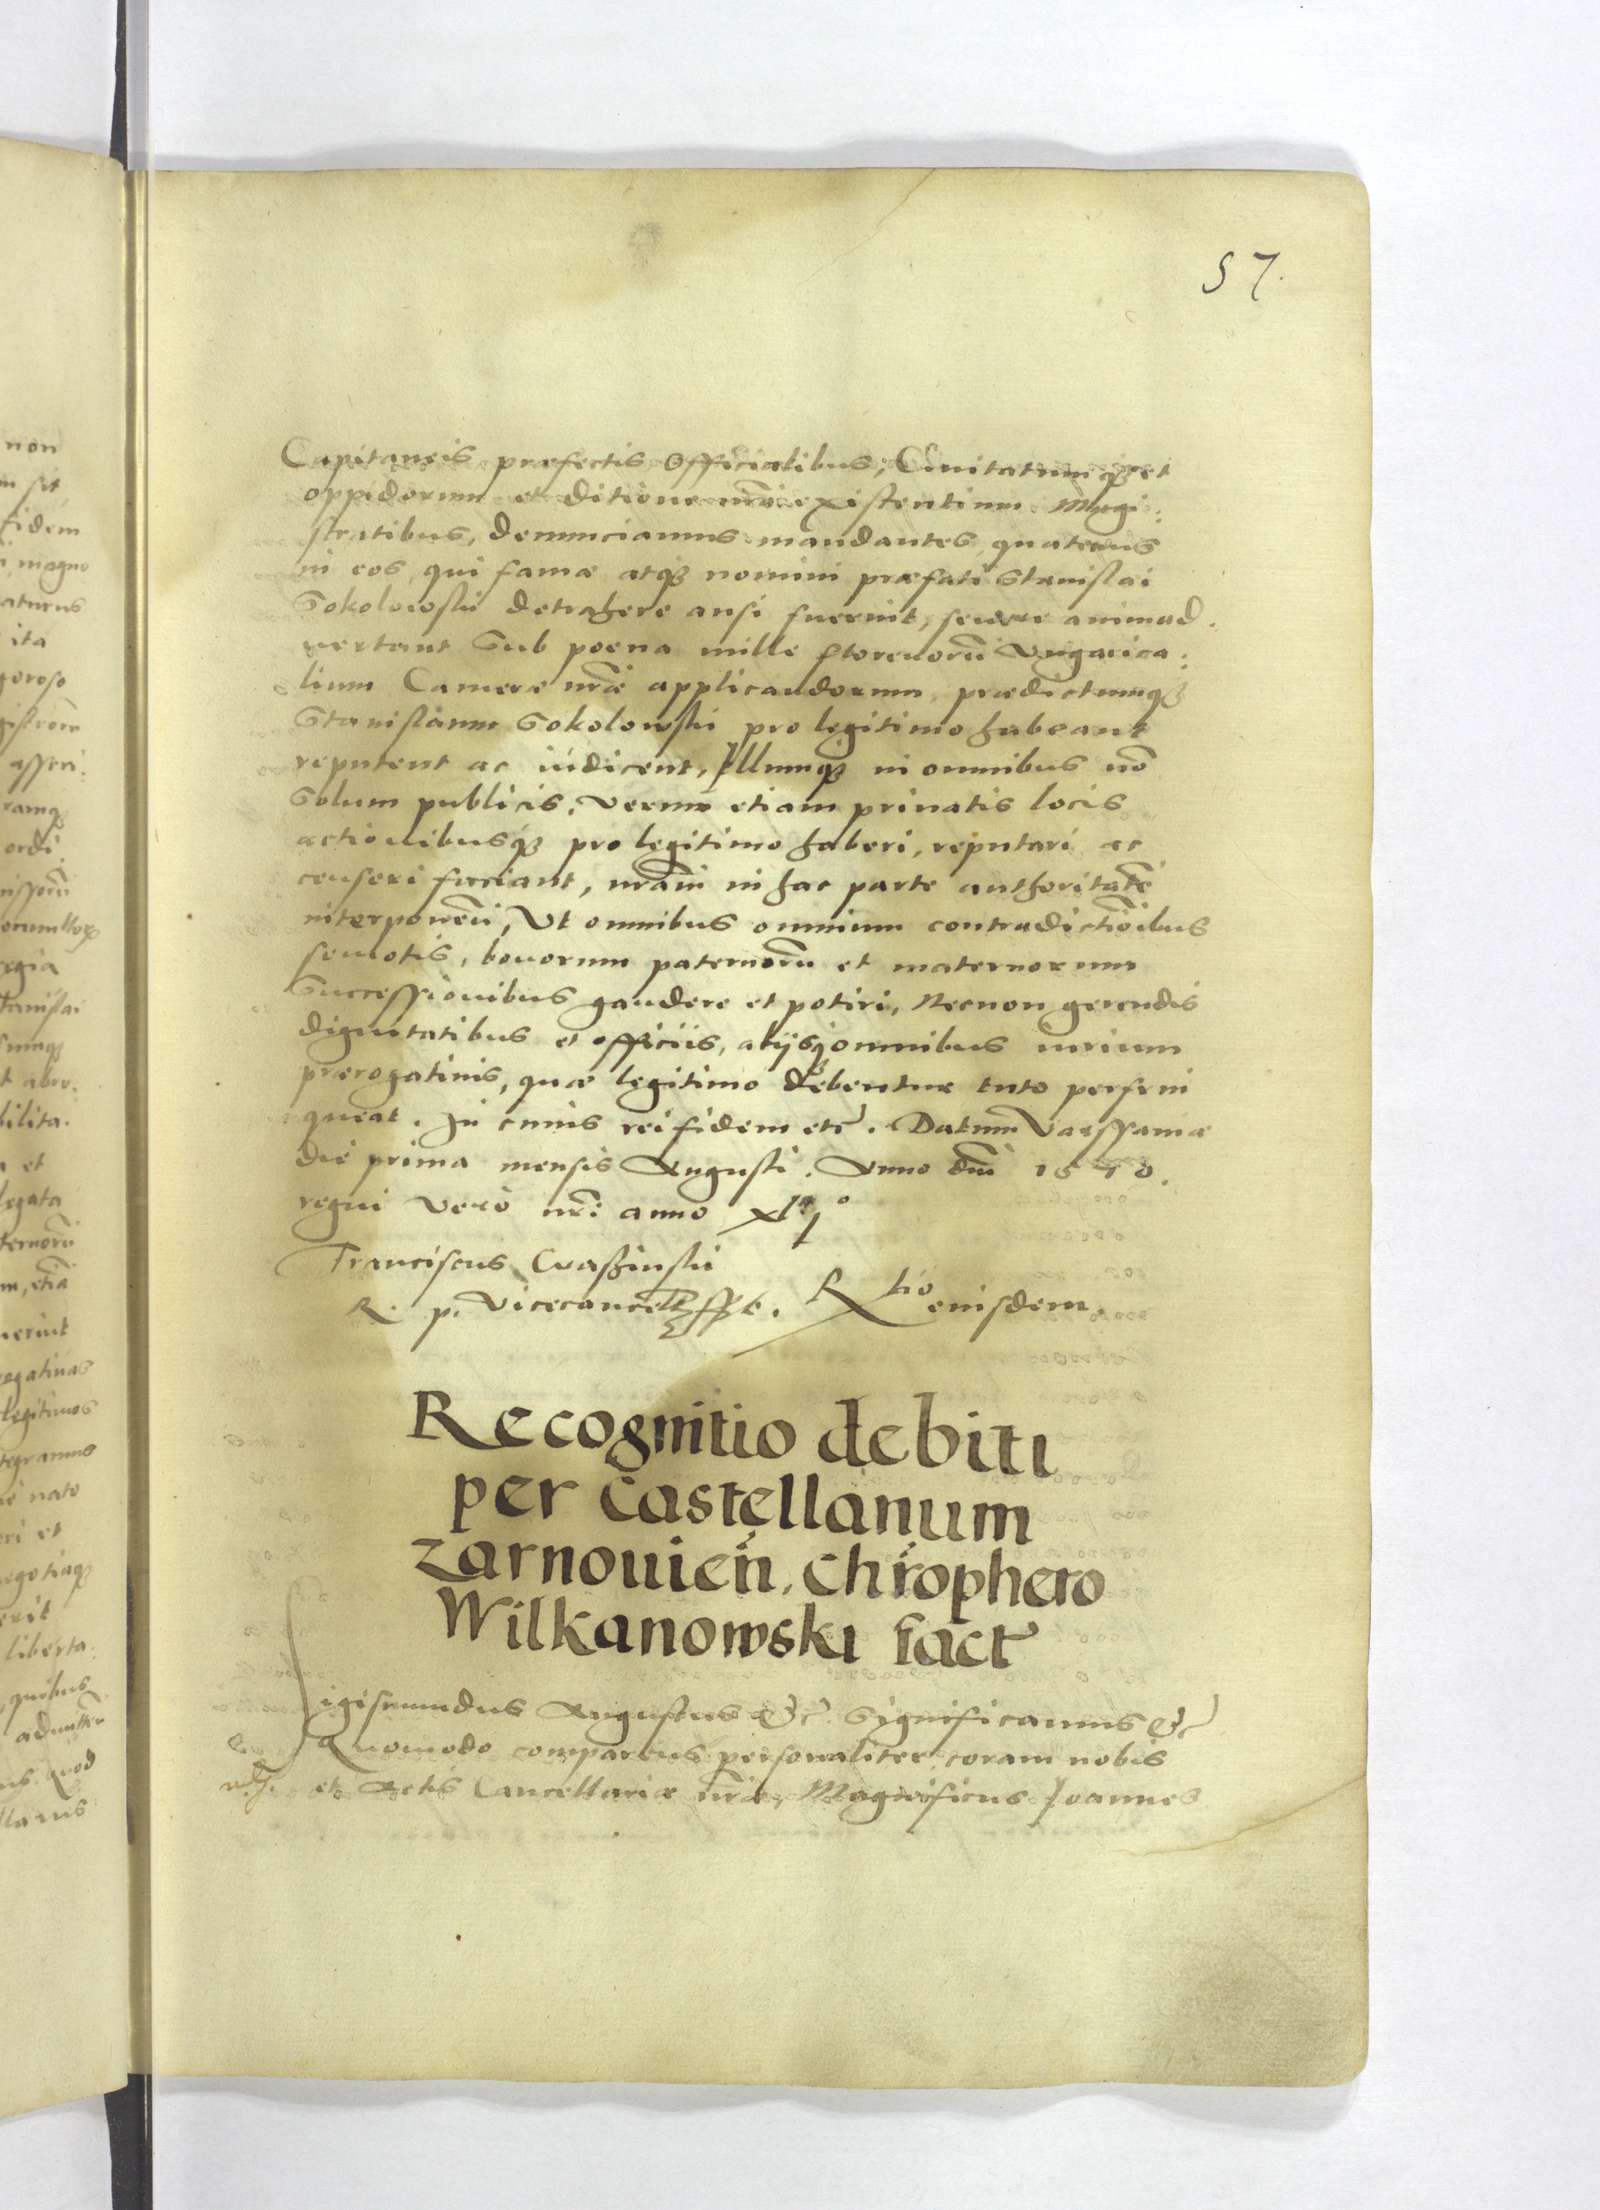 57.
Capitaneis præfectis Officialibus, Civitatumqꝫ et
oppidorum et ditione nrã existentium Magi:
stratibus, denunciamus mandantes, quatenus
in eos, qui famæ atqꝫ nomini præfati Stanislai
Sokolowski detrahere ausi fuerint, severe animad.
vertant Sub poena mille florenorũ Vngarica:
lium Cameræ nrãe applicandorum, prædictumqꝫ
Stanislaum Sokolowski pro legitimo habeant
reputent ac iudicent, Illumqꝫ in omnibus nõ
Solum publicis, Verum etiam privatis locis
actionibusqꝫ pro legitimo haberi, reputari ac
censeri faciant, nrãm in hac parte authoritatẽ
interponẽn, Ut omnibus omnium contradictiõibus
semotis, bonorum paternorũ et maternorum
Successionibus gaudere et potiri, Necnon gerendis
dignitatibus et officiis, alijsqꝫ omnibus iurium
prærogativis, quæ legitimo debentur tuto perfrui
queat. In cuius rei fidem etc. Datum Varssaviæ
die prima mensis Augusti. Anno dñi 1570.
regni vero nr̃i anno xli°
Franciscus Crasinski
R. p. Vicecancell ssst. Rtio eiusdem.
Recognitio debiti
per Castellanum
Zarnouień. Chrõphero
Wilkanowski fact
Sigismundus Augustus &c Significamus &c
Quomodo comparens personaliter coram nobis
et Actis Cancellariæ nrãe, Magnificus Joannes